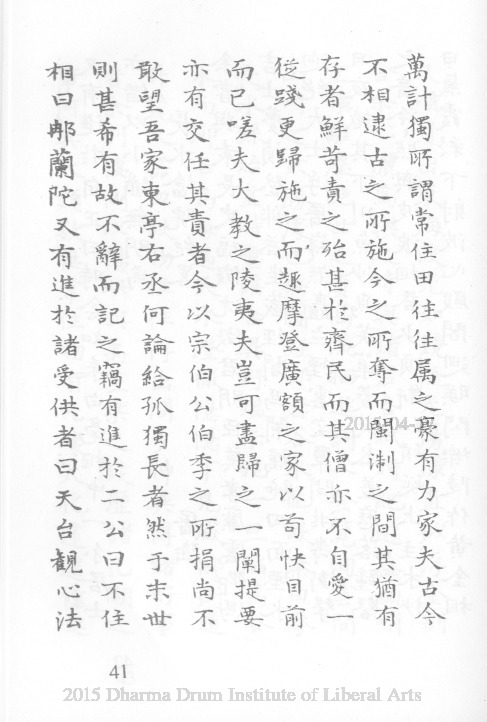 萬計獨所謂常住田往往属之豪有力家夫古今
不相逮古之所施今之所奪而閩淛之間其猶有
存者鮮苛責之殆甚扵齊民而其僧亦不自愛一
從踐更歸施之而趣摩登廣額之家以苟快目前
而已嗟夫大教之陵夷夫豈可盡歸之一闡提要
亦有交任其責者今以宗伯公伯季之所捐尚不
敢望吾家東亭右丞何論給孤獨長者然于末世
則甚希有故不辭而記之竊有進扵二公曰不住
相曰那蘭陀又有進扵諸受供者曰天台観心法
41
2015 Dharma Drum Institute of Liberal Arts